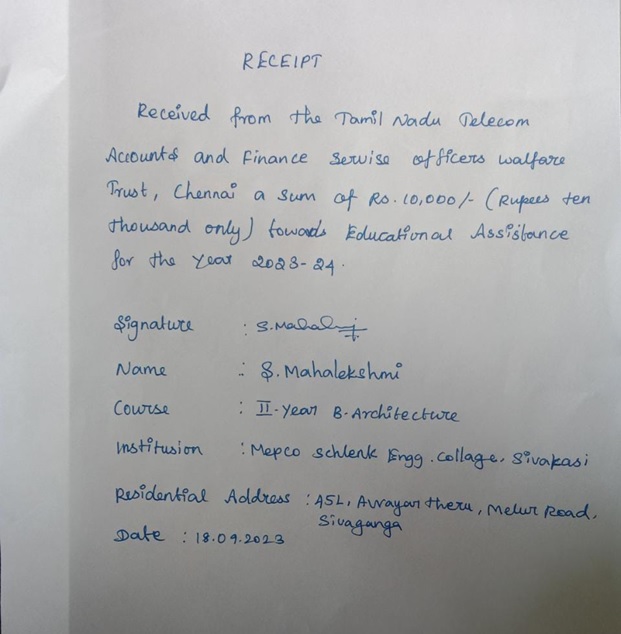 RECEIPT
Received from the Tamil Nadu Telecom
Accounts and Finance Servise officers walfare
Trust, Chennai a sum of Rs. 10,000/- (Rupees ten
thousand only) towards Educational Assistance
for the year 2023-24.
Signature : S.Mahalaj
Name : S. Mahalekshmi
Course : II-year B-Architecture
Institusion : Mepco Schlenk Engg. Collage, Sivakasi
Residential Address : Theru, Melur Road,
Sivaganga
Date : 18.09.2023